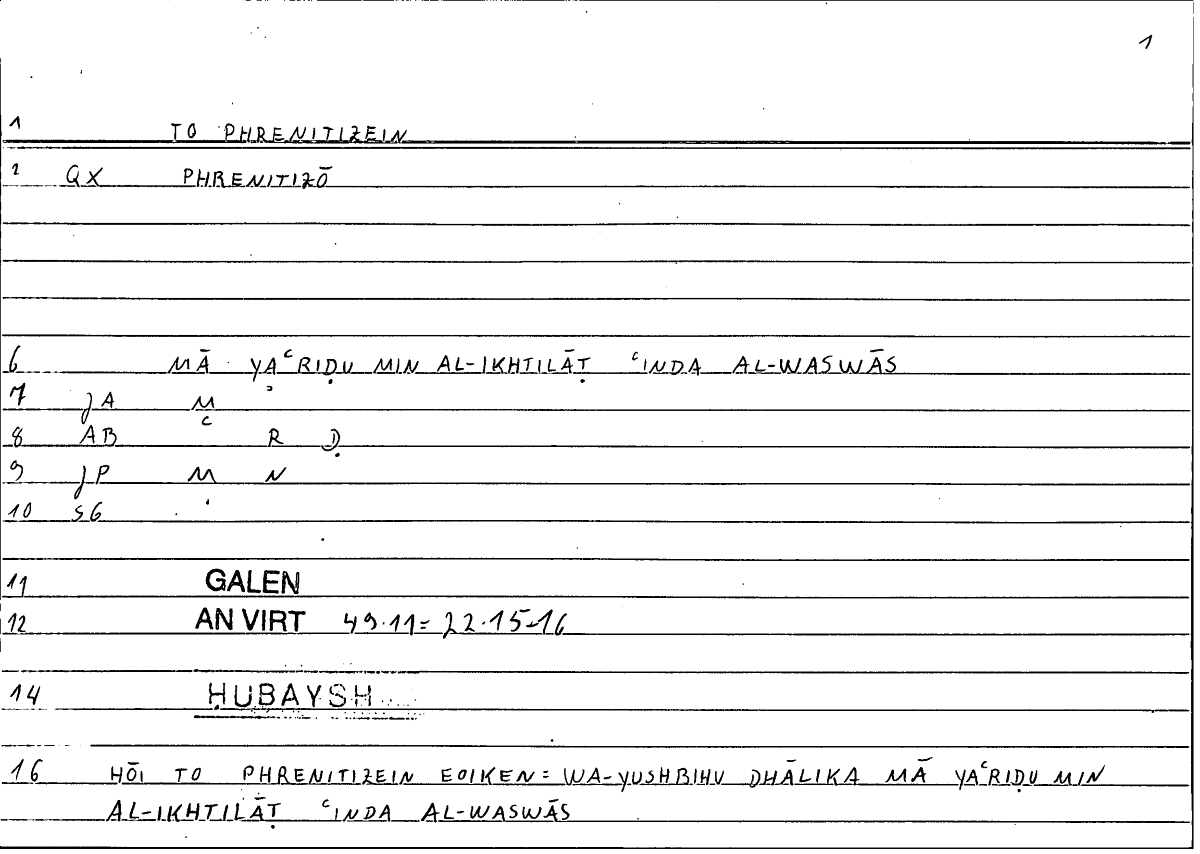 1
1 TO PHRENITIZEIN
2 QX PHRENITIZŌ
6 MĀ YAʿRIḌU MIN AL-IKHTILĀṬ ʿINDA AL-WASWĀS
7 JA M
8 AB ʿ R Ḍ
9 JP M N
10 SG
11 GALEN
12 AN VIRT 49.11= 22.15-16
14 ḤUBAYSH
16 HŌI TO PHRENITIZEIN EOIKEN = WA-YUSHBIHU DHĀLIKA MĀ YAʿRIḌU MIN
AL-IKHTILĀṬ ʿINDA AL-WASWĀS